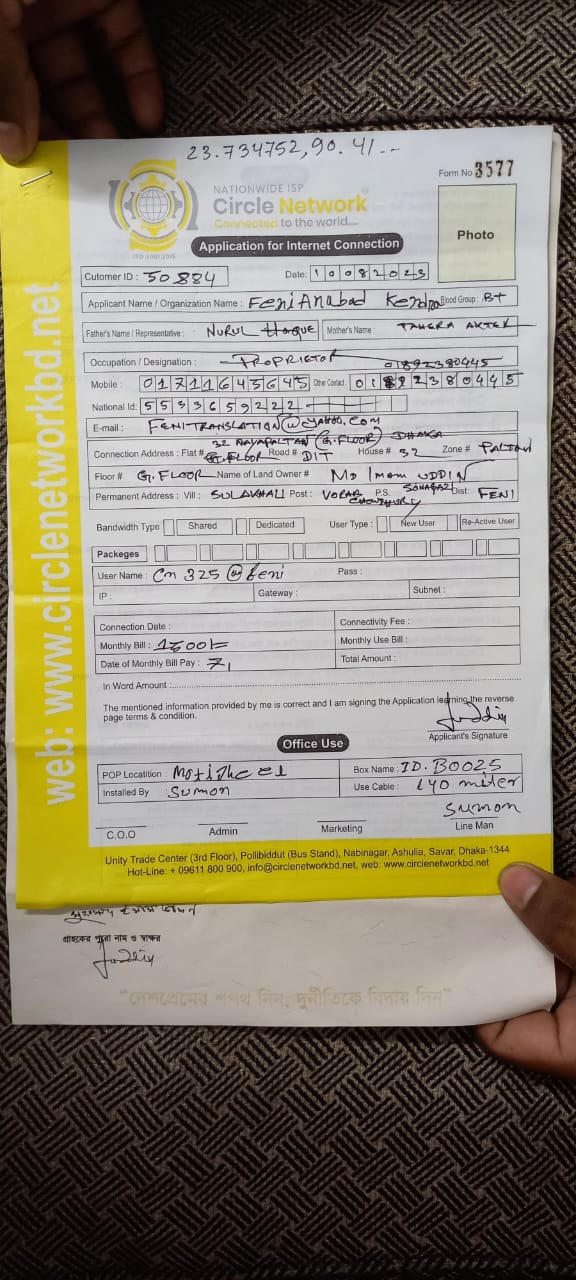 23.734752, 90.41--
Form No 3577
NATIONWIDE ISP
Circle Network
Connected to the world....
ISO 9001:2015
Photo
Application for Internet Connection
Cutomer ID : 50884 Date: 10082023
Applicant Name / Organization Name : Feni Anubad Kendra Blood Group: B+
Father's Name / Representative : NURUL HAQUE Mother's Name : TAHERA AKTER
Occupation / Designation : PROPRIETOR 01892380445
Mobile : 01711645645 Other Contact 01892380445
National Id: 5533659222
E-mail : FENITRANSLATION@yahoo.com
32 NAYAPALTAN (G.FLOOR) DHAKA
Connection Address : Flat# G.FLOOR Road # DIT House # 32 Zone # PALTAN
Floor # G.FLOOR Name of Land Owner # MD Imam UDDIN
Permanent Address : Vill : SULAKHALI Post : VORAB CHOWDHURY P.S. SONAGAZI Dist: FENI
Bandwidth Type Shared Dedicated User Type : New User Re-Active User
Packeges
User Name : Cn 325@feni Pass :
IP : Gateway : Subnet :
Connection Date : Connectivity Fee :
Monthly Bill : 1500/= Monthly Use Bill :
Date of Monthly Bill Pay : 7, Total Amount :
In Word Amount :
The mentioned information provided by me is correct and I am signing the Application learning the reverse
page terms & condition.
Applicant's Signature
Office Use
POP Locatition : Motijheel Box Name : ID. B0025
Installed By : Sumon Use Cable : 140 miter
Sumon
C.O.O Admin Marketing Line Man
Unity Trade Center (3rd Floor), Pollibiddut (Bus Stand), Nabinagar, Ashulia, Savar, Dhaka-1344
Hot-Line: + 09611 800 900, info@circlenetworkbd.net, web: www.circlenetworkbd.net
web: www.circlenetworkbd.net
গ্রাহকের পুরো নাম ও স্বাক্ষর
“দেশপ্রেমের শপথ নিন, দুর্নীতিকে বিদায় দিন”